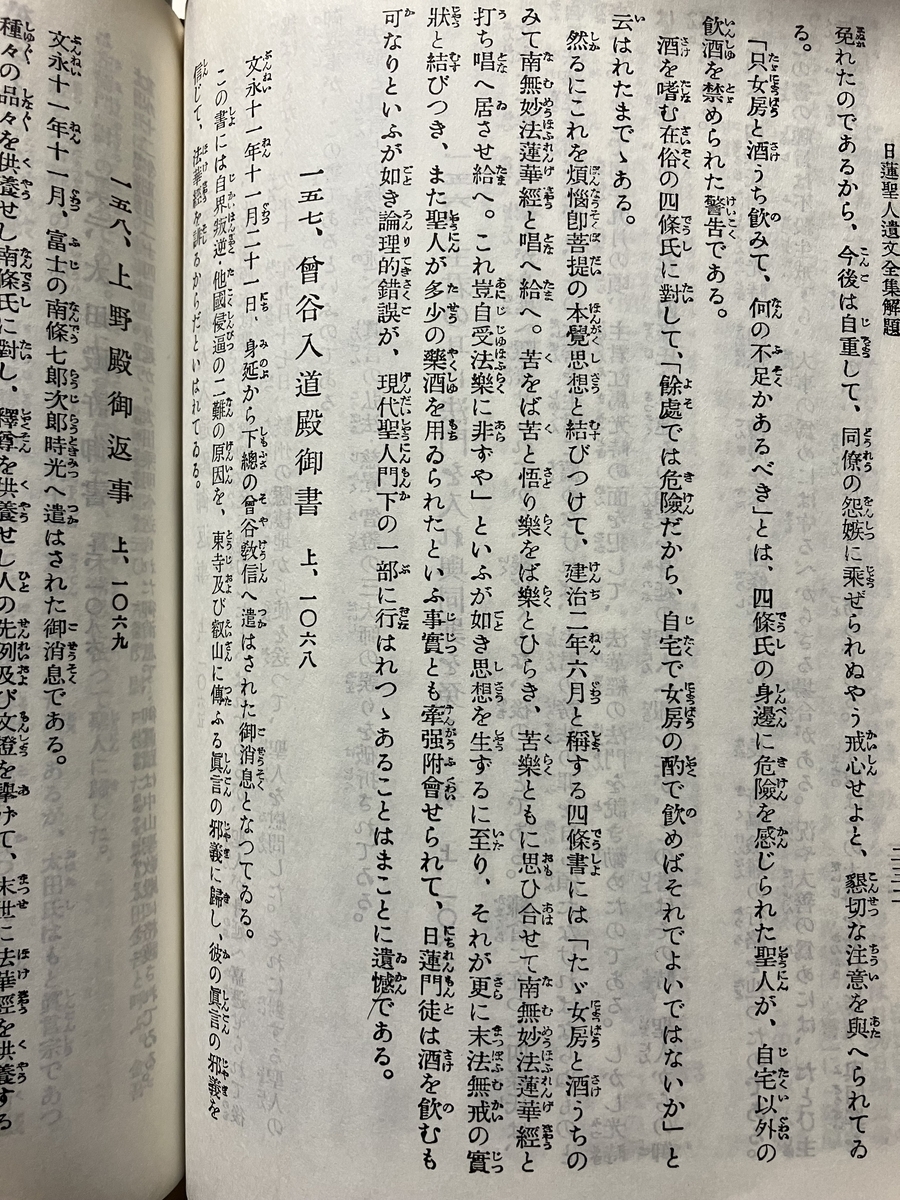 日蓮聖人遺文全集解題
免れたのであるから、今後は自重して、同僚の怨嫉に乘ぜられぬやう戒心せよと、懇切な注意を與へられてゐ
る。
「只女房と酒うち飮みて、何の不足かあるべき」とは、四條氏の身邊に危險を感じられた聖人が、自宅以外の
飮酒を禁められた警告である。
酒を嗜む在俗の四條氏に對して、「餘處では危險だから、自宅で女房の酌で飮めばそれでよいではないか」と
云はれたまでゝある。
然るにこれを煩惱卽菩提の本覺思想と結びつけて、建治二年六月と稱する四條書には「たゞ女房と酒うちの
みて南無妙法蓮華經と唱へ給へ。苦をば苦と悟り樂をば樂とひらき、苦樂ともに思ひ合せて南無妙法蓮華經と
打ち唱へ居させ給へ。これ豈自受法樂に非ずや」といふが如き思想を生ずるに至り、それが更に末法無戒の實
狀と結びつき、また聖人が多少の藥酒を用ゐられたといふ事實とも牽强附會せられて、日蓮門徒は酒を飮むも
可なりといふが如き論理的錯誤が、現代聖人門下の一部に行はれつゝあることはまことに遺憾である。
一五七、曾谷入道殿御書　上、一〇六八
文永十一年十一月二十一日、身延から下總の曾谷敎信へ遣はされた御消息となつてゐる。
この書には自界叛逆・他國侵逼の二難の原因を、東寺及び叡山に傳ふる眞言の邪義に歸し、彼の眞言の邪義を
信じて、法華經を謗るからだといはれてゐる。
一五八、上野殿御返事　上、一〇六九
文永十一年十一月、富士の南條七郎次郎時光へ遣はされた御消息である。
種々の品々を供養せし南條氏に對し、釋尊を供養せし人の先例及び文證を擧げて、末世に法華經を供養する